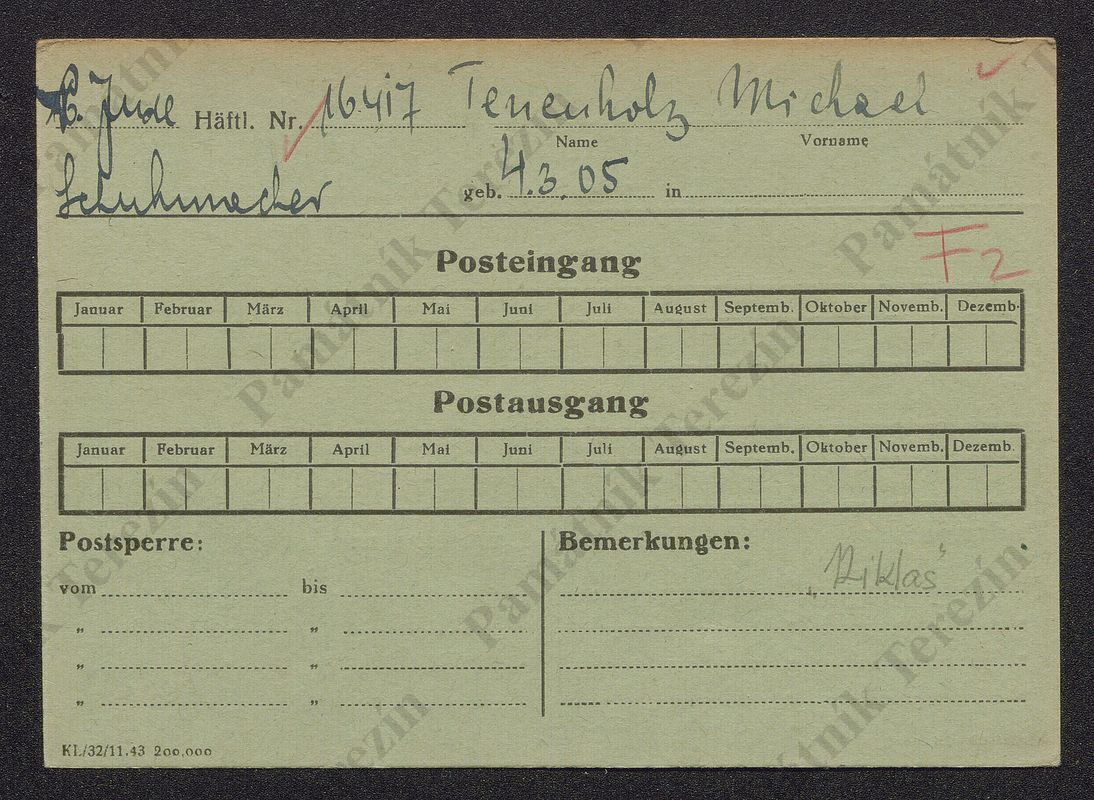 Jude Häftl. Nr. 16417 Tenenholz Michael
Name Vorname
Schuhmacher geb. 4.3.05 in
F2
Posteingang
Januar Februar März April Mai Juni Juli August Septemb. Oktober Novemb. Dezemb.
Postausgang
Januar Februar März April Mai Juni Juli August Septemb. Oktober Novemb. Dezemb.
Postsperre: Bemerkungen:
vom bis
„ „
„ „
„ „
KL/32/11.43 200,000
Památník Terezín